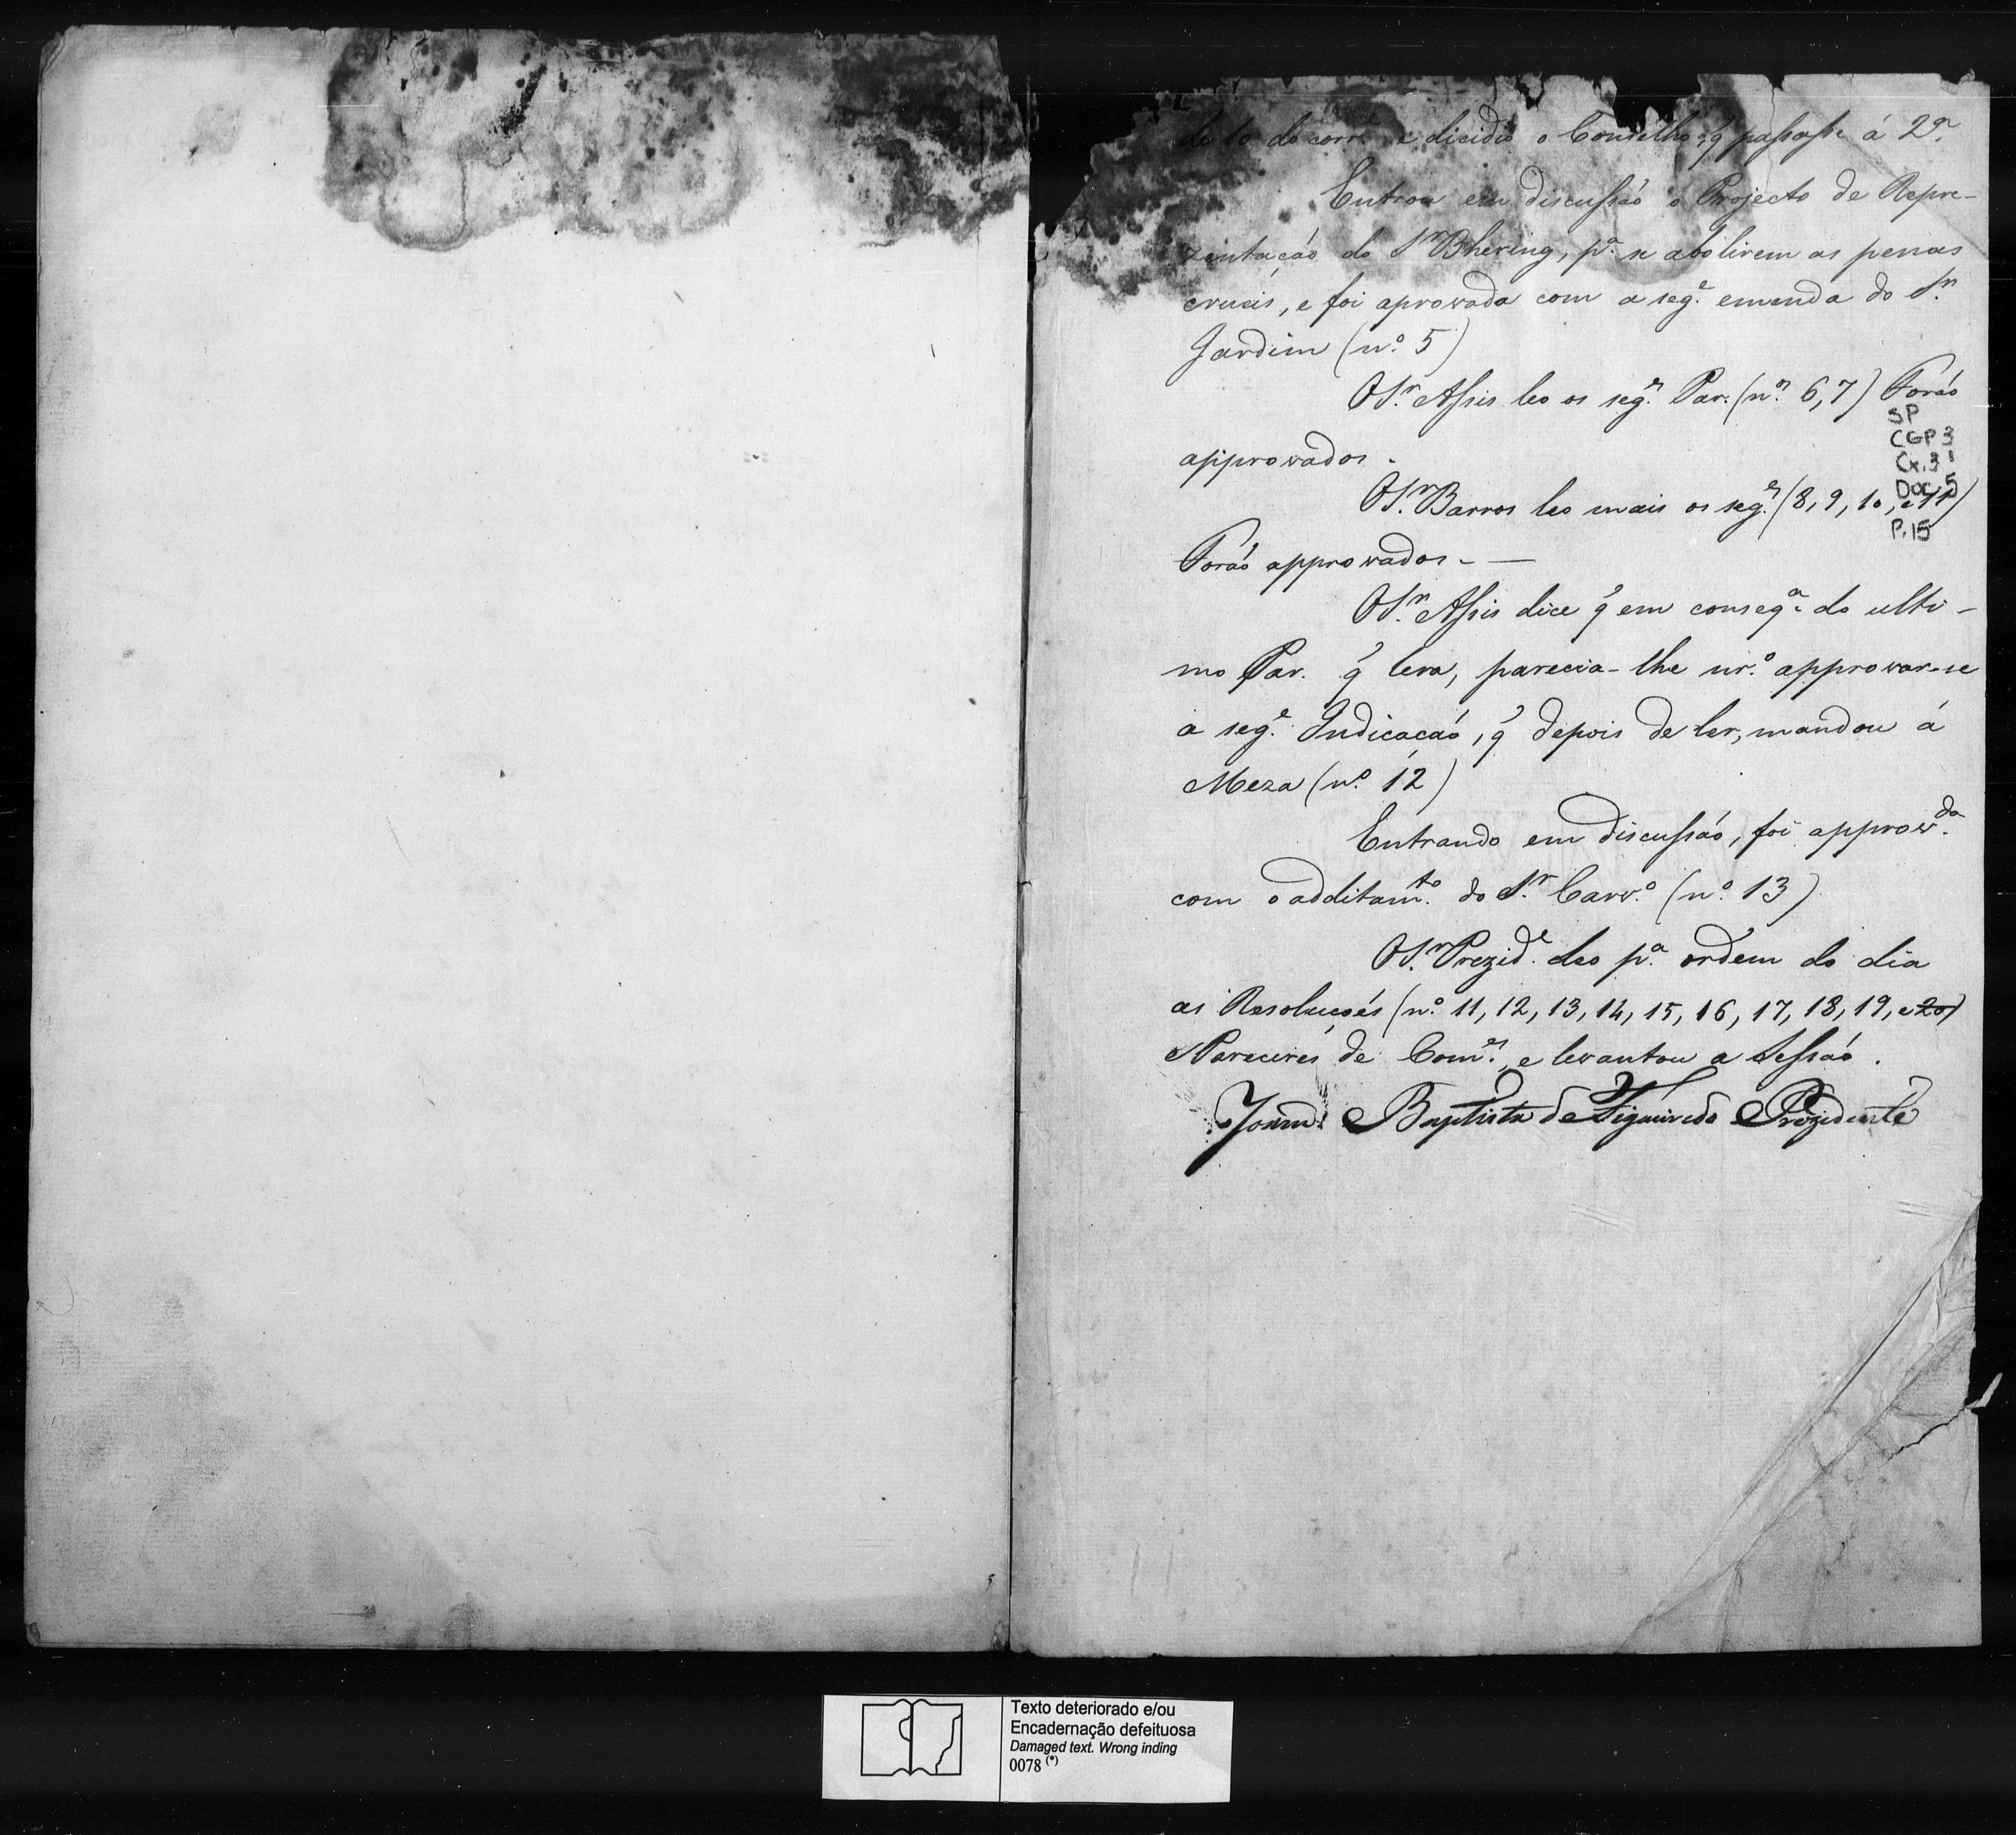 de 10 do corr.e e dicidio o Conselho, q̃ passasse á 2ª.
Entrou em discussaõ o Projecto de Repre-
zentaçaõ do Sr. Bhering, pª. se abolirem as penas
crueis, e foi aprovada com a seg.e emenda do Sr.
Jardim (nº. 5)
O Sr. Assis leo os seg.es Par. (nos. 6, 7) Foraõ
approvados.
SP
CGP 3
Cx. 31
Doc. 5
P. 15
O Sr. Barros leo mais os seg.es (8, 9, 10, e 11)
Foraõ approvados. —
O Sr. Assis dice q̃ em conseqª. do ulti-
mo Par. q̃ lera, parecia-lhe nr.º approvar-se
a seg.e Indicaçaõ, q̃ depois de ler, mandou á
Meza (nº. 12)
Entrando em discussaõ, foi approv.da
com o additam.to do Sr. Carv.º (nº. 13)
O Sr. Prezid.e deo pª. ordem do dia
as Resoluçoẽs (nº. 11, 12, 13, 14, 15, 16, 17, 18, 19, e 20)
Pareceres de Com.es, e levantou a Sessaõ.
Joam Baptista de Figueiredo Prezidente
Texto deteriorado e/ou
Encadernação defeituosa
Damaged text. Wrong inding
0078 (*)